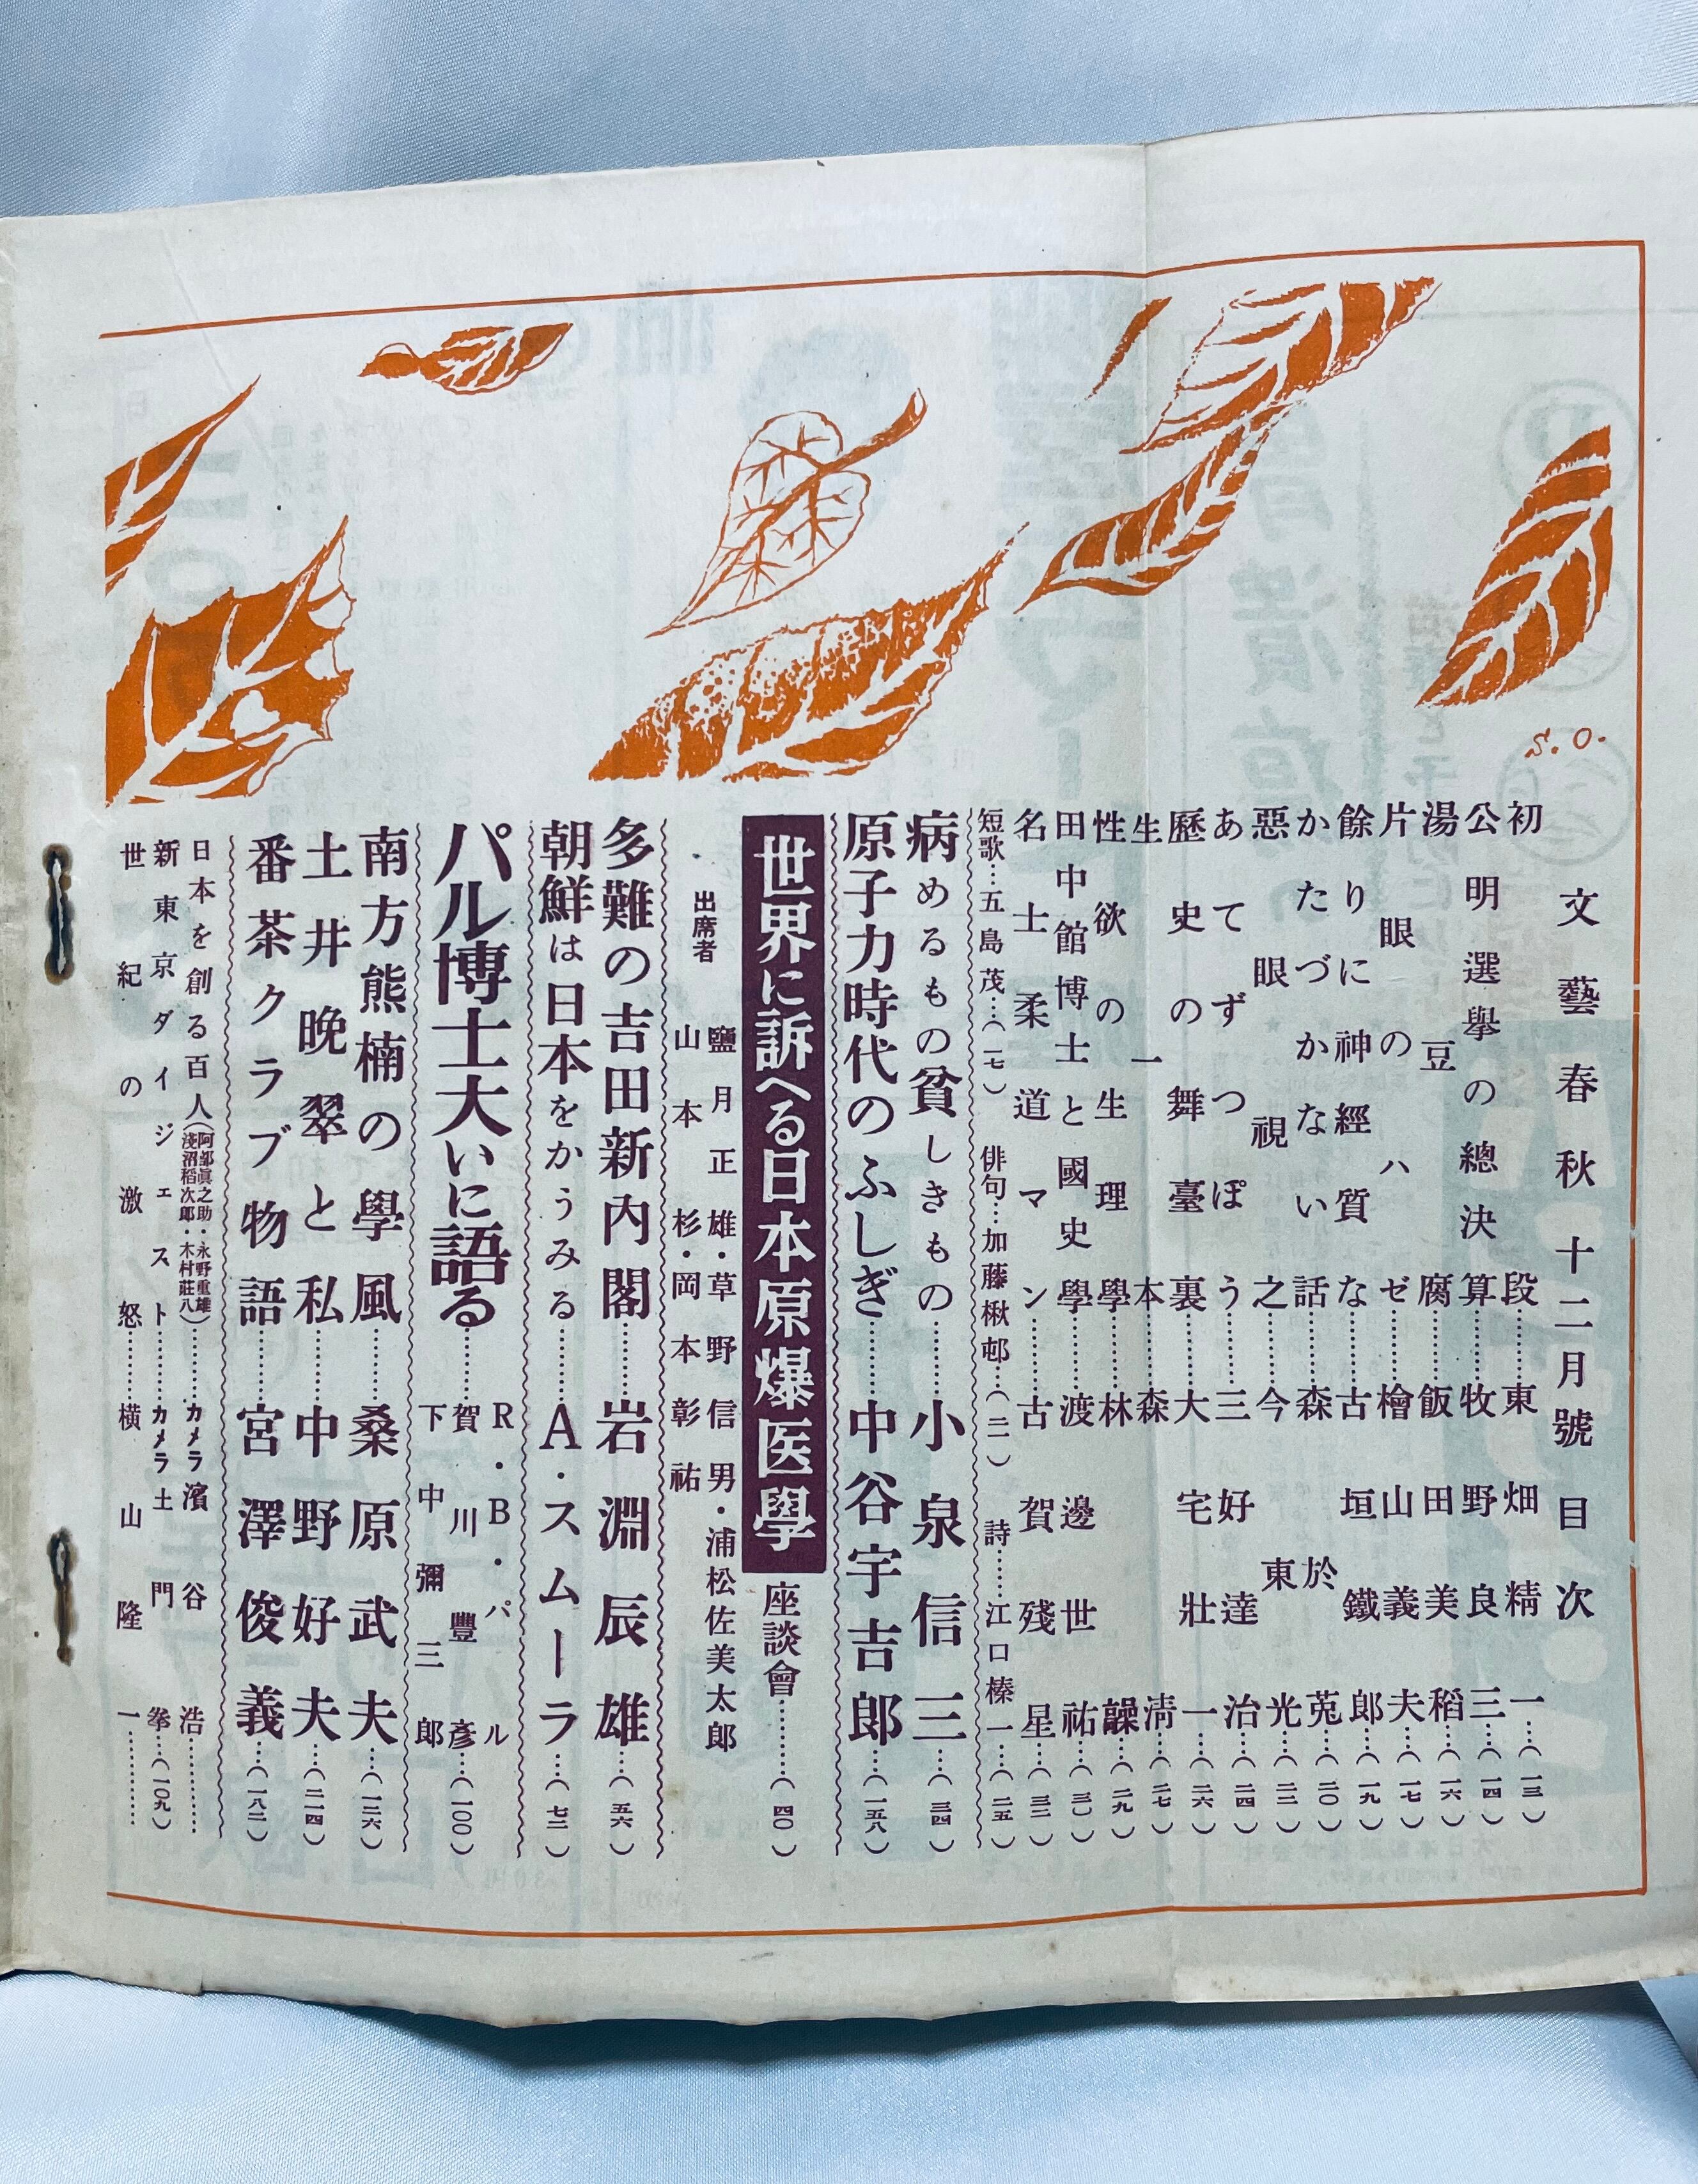 文藝春秋 十二月號 目次
初段……東畑精一…(一三)
公明選擧の總決算……牧野良三…(一四)
湯豆腐……飯田美稻…(一六)
片眼のハゼ……檜山義夫…(一七)
餘りに神經質な……古垣鐵郎…(一九)
かたづかない話……森於菟…(二〇)
惡眼視之……今東光…(二二)
あてずつぽう……三好達治…(二四)
歷史の舞臺裏……大宅壯一…(二六)
生一本……森淸…(二七)
性欲の生理學……林髞…(二九)
田中館博士と國史學……渡邊世祐…(三〇)
名士柔道マン……古賀殘星…(三二)
短歌…五島茂…(一七) 俳句…加藤楸邨…(二一) 詩……江口榛一…(二五)
病めるもの貧しきもの……小泉信三…(三四)
原子力時代のふしぎ……中谷宇吉郎…(一五八)
世界に訴へる日本原爆医學 座談會……(四〇)
出席者 鹽月正雄・草野信男・浦松佐美太郎
山本杉・岡本彰祐
多難の吉田新内閣……岩淵辰雄…(五六)
朝鮮は日本をかうみる……A・スムーラ…(七二)
パル博士大いに語る……R・B・パル
賀川豐彥…(一〇〇)
下中彌三郎
南方熊楠の學風……桑原武夫…(一二六)
土井晩翠と私……中野好夫…(二一四)
番茶クラブ物語……宮澤俊義…(一八二)
日本を創る百人(阿部眞之助・永野重雄・淺沼稻次郎・木村莊八)……カメラ 濱谷浩……
新東京ダイジェスト……カメラ 土門拳…(一〇九)
世紀の激怒……横山隆一……
S.O.